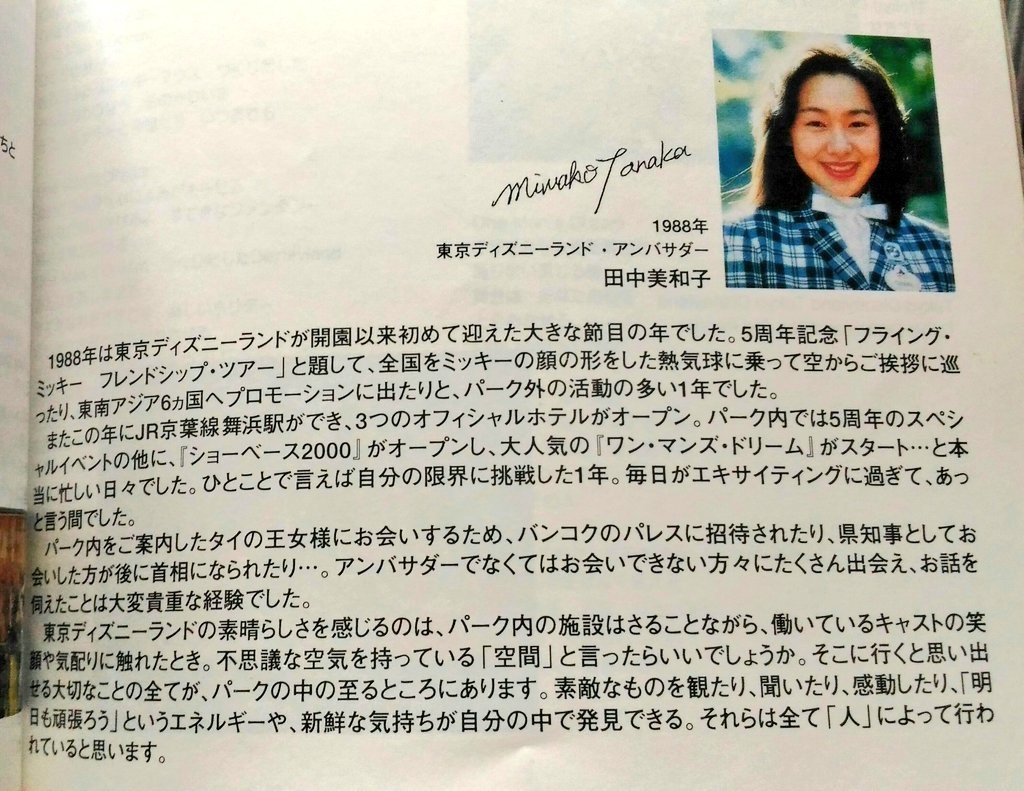 ちと
Miwako Tanaka
1988年
東京ディズニーランド・アンバサダー
田中美和子
1988年は東京ディズニーランドが開園以来初めて迎えた大きな節目の年でした。5周年記念「フライング・
ミッキー フレンドシップ・ツアー」と題して、全国をミッキーの顔の形をした熱気球に乗って空からご挨拶に巡
ったり、東南アジア6ヵ国へプロモーションに出たりと、パーク外の活動の多い1年でした。
またこの年にJR京葉線舞浜駅ができ、3つのオフィシャルホテルがオープン。パーク内では5周年のスペシ
ャルイベントの他に、『ショーベース2000』がオープンし、大人気の『ワン・マンズ・ドリーム』がスタート…と本
当に忙しい日々でした。ひとことで言えば自分の限界に挑戦した1年。毎日がエキサイティングに過ぎて、あっ
と言う間でした。
パーク内をご案内したタイの王女様にお会いするため、バンコクのパレスに招待されたり、県知事としてお
会いした方が後に首相になられたり…。アンバサダーでなくてはお会いできない方々にたくさん出会え、お話を
伺えたことは大変貴重な経験でした。
東京ディズニーランドの素晴らしさを感じるのは、パーク内の施設はさることながら、働いているキャストの笑
顔や気配りに触れたとき。不思議な空気を持っている「空間」と言ったらいいでしょうか。そこに行くと思い出
せる大切なことの全てが、パークの中の至るところにあります。素敵なものを観たり、聞いたり、感動したり、「明
日も頑張ろう」というエネルギーや、新鮮な気持ちが自分の中で発見できる。それらは全て「人」によって行わ
れていると思います。